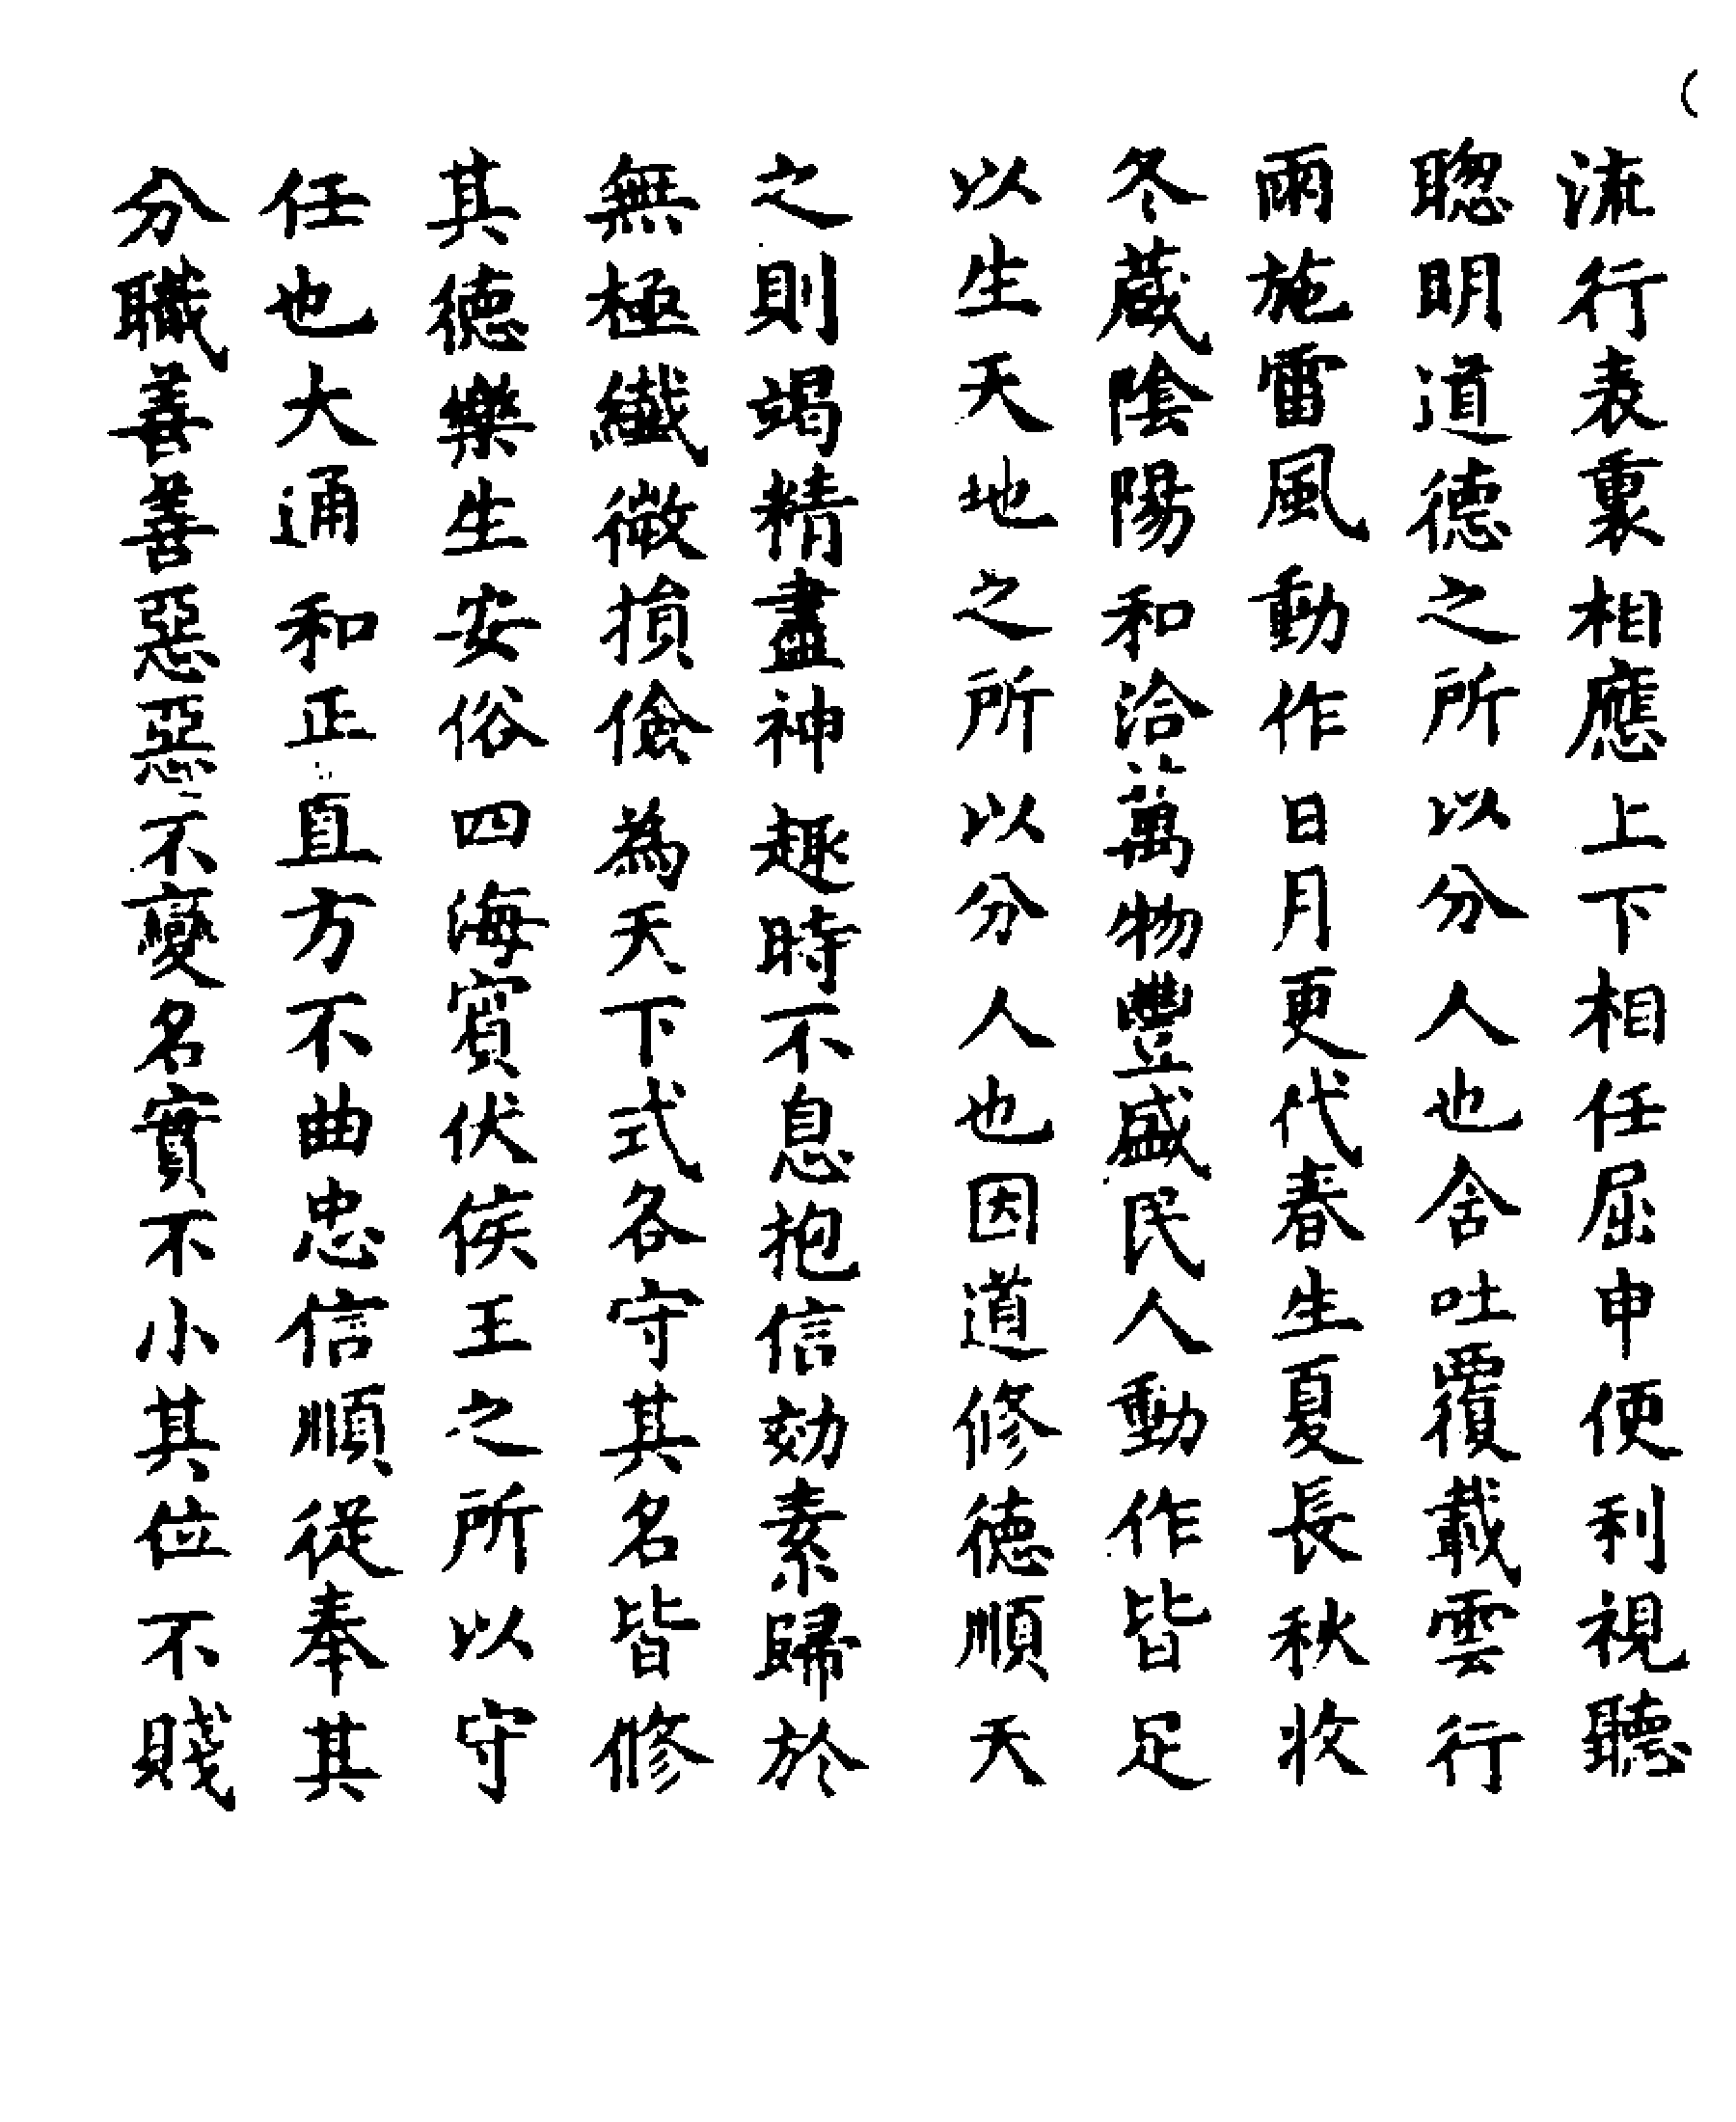 流行表裏相應上下相任屈申便利視聽
聦明道德之所以分人也舍吐覆載雲行
雨施雷風動作日月更代春生夏長秋收
冬蔵陰陽和洽萬物豐盛民人動作皆足
以生天地之所以分人也因道修德順天
之則竭精盡神趣時不息抱信効素歸於
無極纎微損儉為天下式各守其名皆修
其德樂生安俗四海賓伏侯王之所以守
任也大通和正直方不曲忠信順従奉其
分職善善惡惡不變名實不小其位不賤